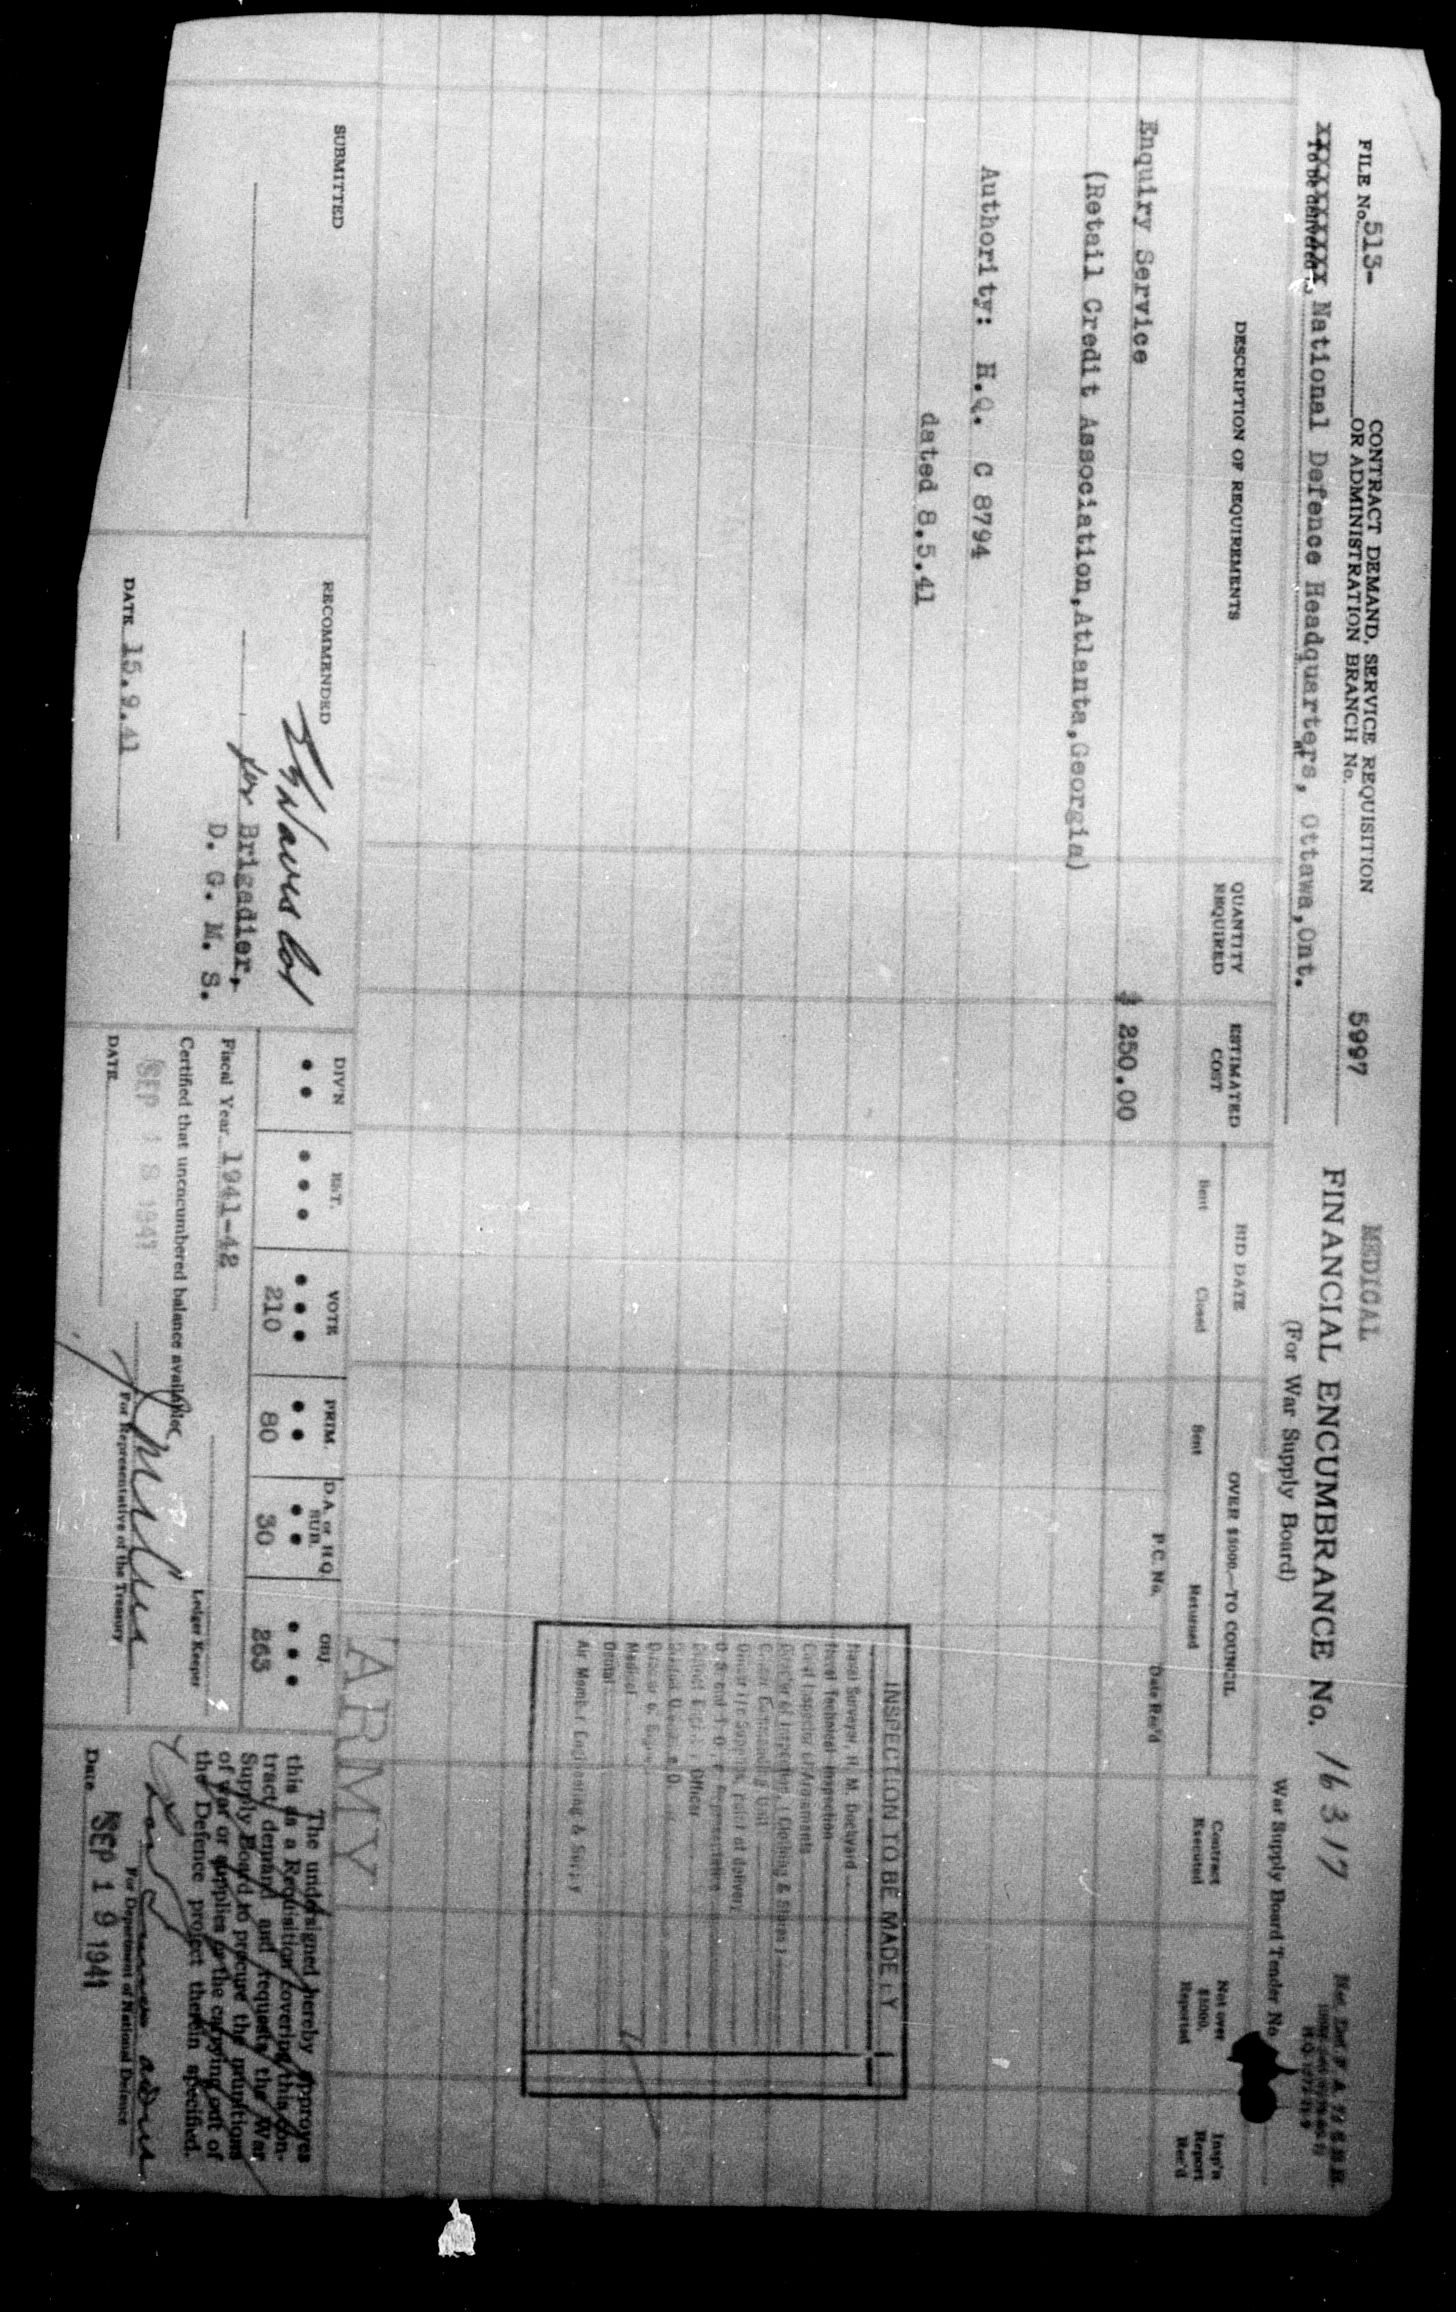 MEDICAL
FILE No. 513-
CONTRACT DEMAND, SERVICE REQUISITION
OR ADMINISTRATION BRANCH No. 5997
FINANCIAL ENCUMBRANCE No. 16317
(For War Supply Board)
War Supply Board Tender No.
To be delivered
National Defence Headquarters, Ottawa, Ont.
at
DESCRIPTION OF REQUIREMENTS
QUANTITY REQUIRED
ESTIMATED COST
BID DATE
Sent
Closed
OVER $5000.—TO COUNCIL
Sent
Returned
Contract Executed
Not over $5000. Reported
Insp'n Report Rec'd
P.C. No.
Date Rec'd
Enquiry Service
$ 250.00
(Retail Credit Association, Atlanta, Georgia)
Authority: H.Q. C 8794
dated 8.5.41
INSPECTION TO BE MADE BY
Naval Surveyor, H. M. Dockyard
Naval Technical Inspection
Chief Inspector of Armaments
Director of Inspection, (Clothing & Stores)
Medical
Dental
Air Member Engineering & Supply
ARMY
SUBMITTED
RECOMMENDED
for Brigadier,
D. G. M. S.
DATE 15.9.41
DIV'N
EST.
VOTE
PRIM.
D.A. or H.Q. SUB.
OBJ.
210
80
30
263
Fiscal Year 1941-42
Ledger Keeper
Certified that unencumbered balance available
SEP 18 1941
DATE
For Representative of the Treasury
The undersigned hereby approves
this as a Requisition covering this con-
tract demand and requests the War
Supply Board to procure the munitions
of war or supplies or the carrying out of
the Defence project therein specified.
For Department of National Defence
Date SEP 19 1941